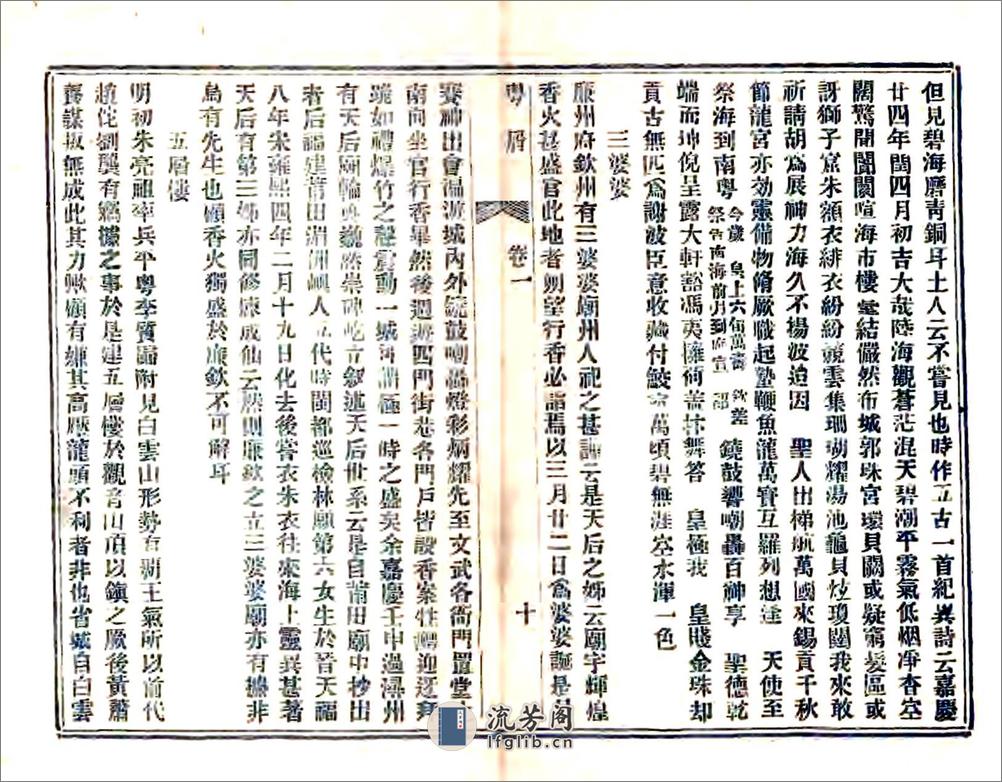 但見碧海磨靑銅耳土人云不嘗見也時作五古一首紀異詩云嘉慶
廿四年閏四月初吉大哉陸海觀蒼茫混天碧潮平霧氣低烟淨杳空
闊驚聞闤闠喧海市樓臺結儼然布城郭珠宮環貝闕或疑窮髮區或
訝獅子窟朱額衣緋衣紛紛競雲集珊瑚耀湯池龜貝炫瓊闕我來敢
祈請胡爲展神力海久不揚波迫因 聖人出梯航萬國來錫貢千秋
節龍宮亦効靈備物脩厥職起蟄鞭魚龍萬寶互羅列想逢 天使至
祭海到南粵 今歲 皇上六旬萬壽 欽差祭告南海前月到 鐃鼓響嘲轟百神享 聖德乾
端而坤倪呈露大軒豁馮夷擁荷蓋抃舞答 皇極我 皇賤金珠却
貢古無匹爲謝波臣意收藏付鮫宗萬頃碧無涯空水渾一色
三婆婆
廉州府欽州有三婆婆廟州人祀之甚謹云是天后之姊云廟宇輝煌
香火甚盛官此地者朔望行香必詣焉以三月廿二日爲婆婆誕是日
粵屑
卷一
十
賽神出會遍游城內外鐃鼓嘲轟燈彩炳耀先至文武各衙門置堂
南向坐官行香畢然後週遊四門街巷各門戶皆設香案牲醴迎迓拜
跪如禮爆竹之聲震動一城可謂極一時之盛矣余嘉慶壬申過潯州
有天后廟輪奐巍然崇碑屹立敘述天后世系云是自莆田廟中抄出
者后福建莆田湄洲嶼人五代時閩都巡檢林願第六女生於晉天福
八年宋雍熙四年二月十九日化去後嘗衣朱衣往來海上靈異甚著
天后有第三姊亦同修煉成仙云然則廉欽之立三婆婆廟亦有據非
烏有先生也顧香火獨盛於廉欽不可解耳
五層樓
明初朱亮祖率兵平粵李質歸附見白雲山形勢有霸王氣所以前代
趙佗劉龑有竊據之事於是建五層樓於觀音山頂以鎭之厥後黃蕭
養謀叛無成此其力歟顧有嫌其高壓龍頭不利者非也省城自白雲
流芳阁
lfglib.cn